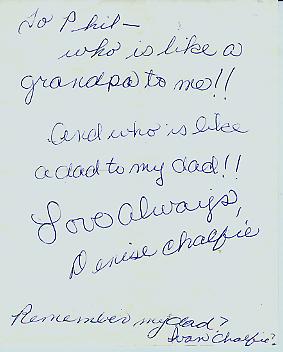 To Phil-
who is like a
grandpa to me!!
And who is like
a dad to my dad!!
Love Always,
Denise Chalfie
Remember my dad?
Ivan Chalfie?